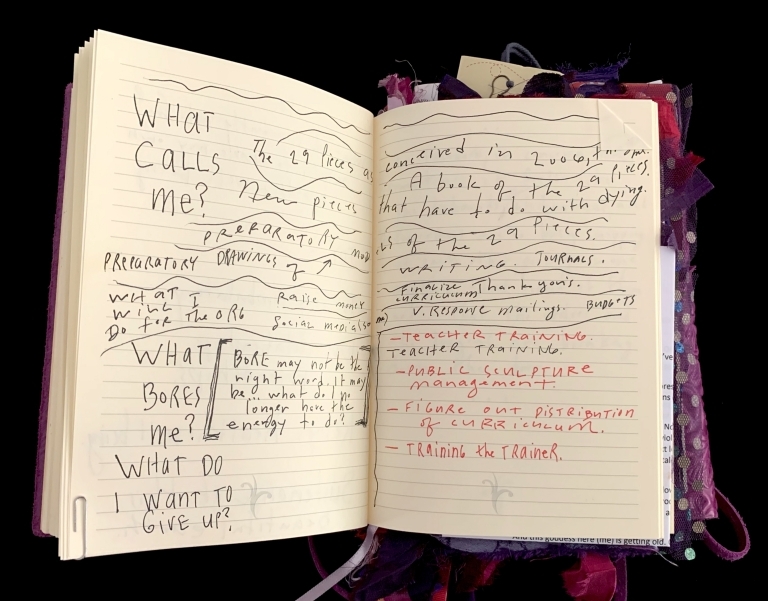 WHAT
CALLS
ME?
The 29 Pieces as conceived in 2006,
New pieces A book of the 29 Pieces.
that have to do with dying.
PREPARATORY
PREPARATORY DRAWINGS of of the 29 Pieces.
WRITING. JOURNALS.
WHAT I
WILL
DO FOR THE ORG
Raise money
Social media
Finalize
curriculum Thank you's.
V. Response mailings. BUDGETS
WHAT
BORES
ME?
BORE may not be the
right word. It may
be... what do I no
longer have the
energy to do?
WHAT DO
I WANT TO
GIVE UP?
– TEACHER TRAINING.
TEACHER TRAINING.
– PUBLIC SCULPTURE
management.
– FIGURE OUT DISTRIBUTION
of CURRICULUM.
– TRAINING the TRAINER.
And this goddess here (me) is getting old.